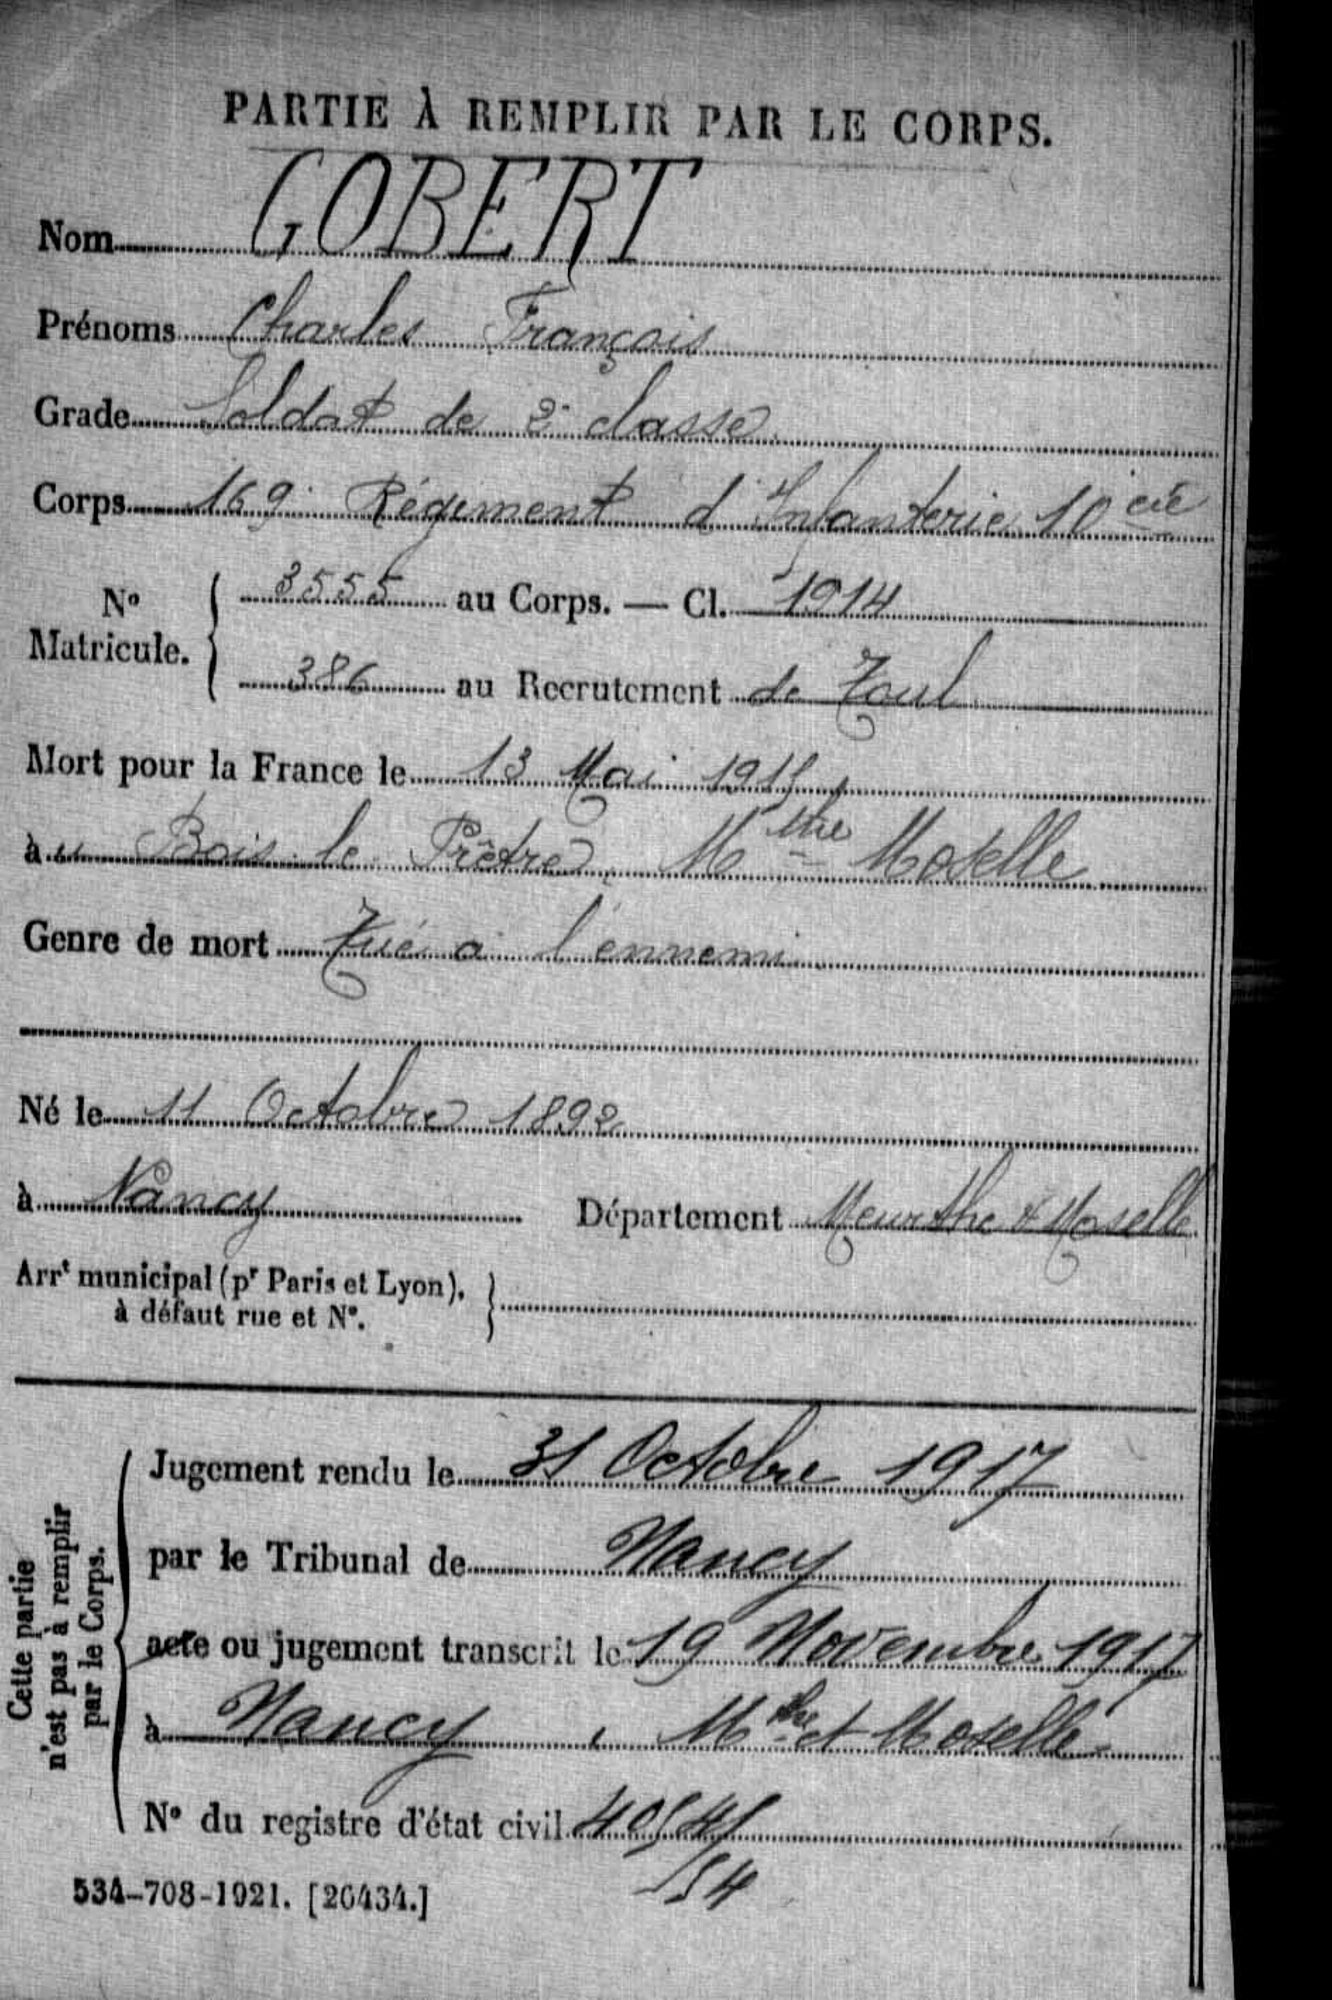 PARTIE À REMPLIR PAR LE CORPS.
Nom GOBERT
Prénoms Charles François
Grade Soldat de 2e classe
Corps 169e Régiment d'Infanterie 10 cie
No Matricule. { 3555 au Corps. — Cl. 1914
386 au Recrutement de Toul
Mort pour la France le 13 Mai 1915
à u Bois le Prêtre, Mthe Moselle
Genre de mort Tué à l'ennemi
Né le 11 Octobre 1892
à Nancy Département Meurthe & Moselle
Arrt municipal (pr Paris et Lyon), à défaut rue et No. }
Cette partie n'est pas à remplir par le Corps.
Jugement rendu le 31 Octobre 1917
par le Tribunal de Nancy
acte ou jugement transcrit le 19 Novembre 1917
à Nancy, Mthe et Moselle
No du registre d'état civil
534-708-1921. [26434.]